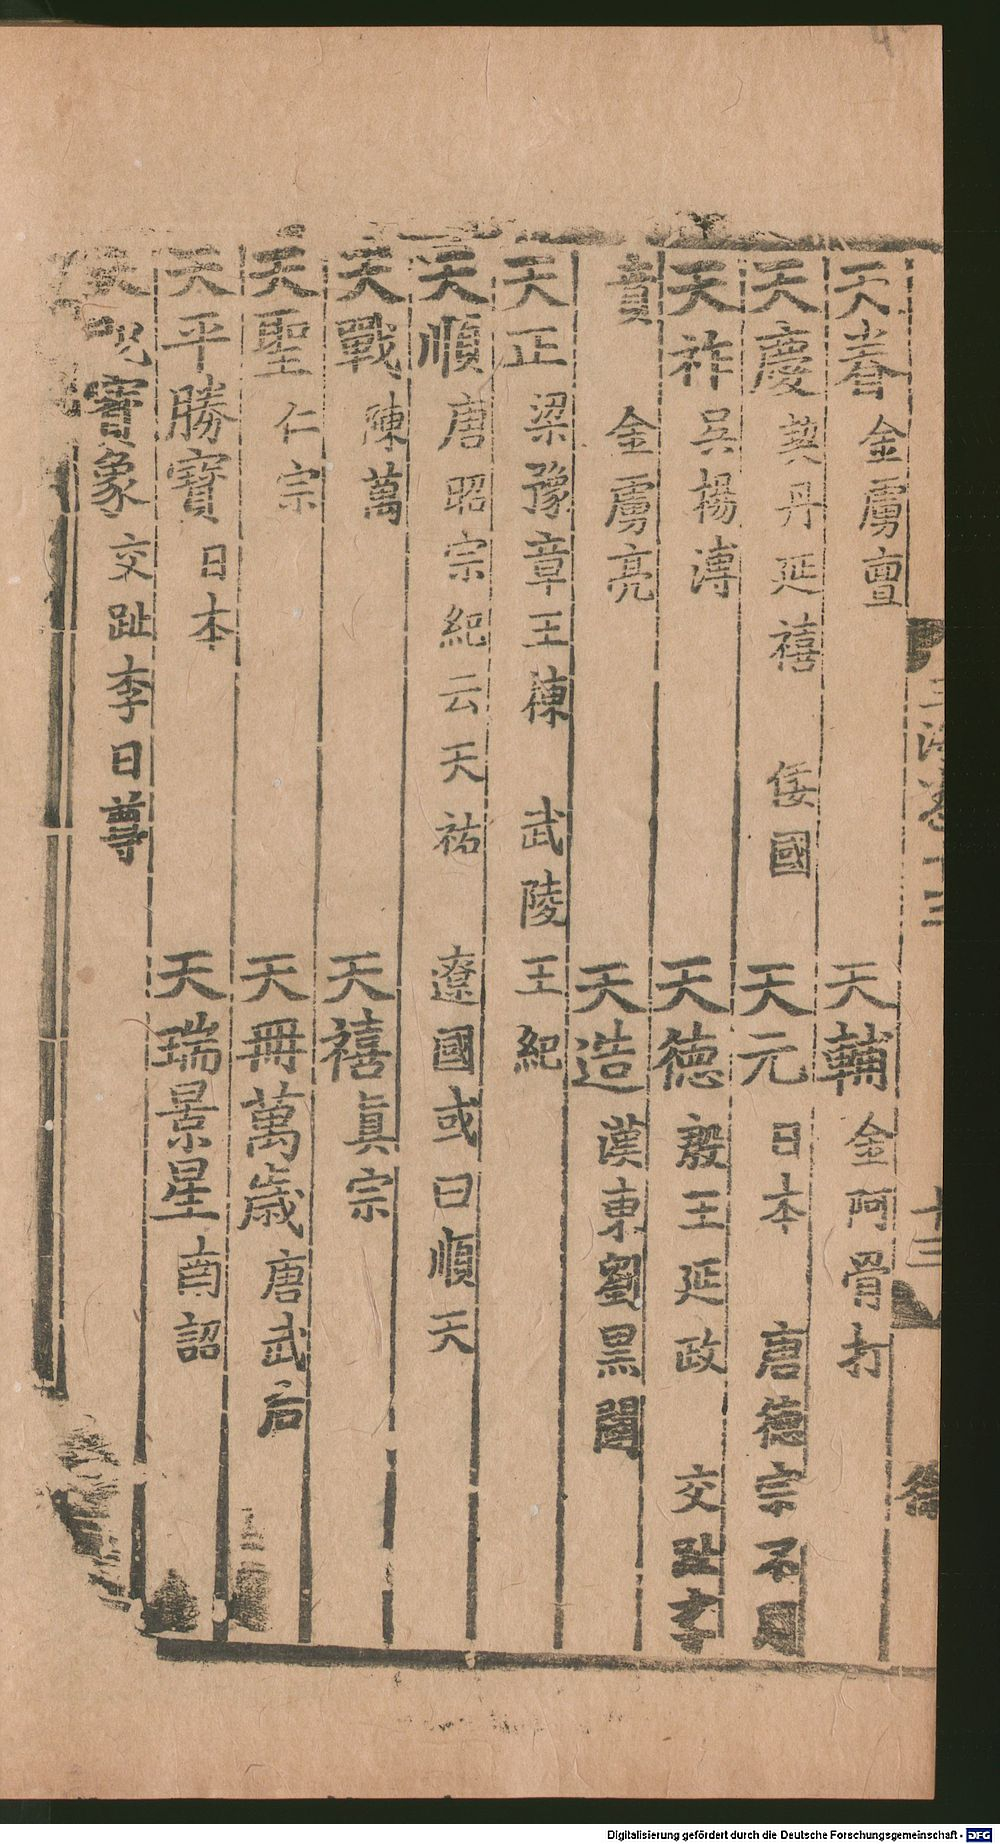 天眷 金虜亶 天輔 金阿骨打
天慶 契丹延禧 倭國 天元 日本 唐德宗不用
天祚 吳楊溥 天德 殷王延政 交趾李
賁 金虜亮 天造 漢東劉黑闥
天正 梁豫章王棟 武陵王紀
天順 唐昭宗紀云天祐 遼國或曰順天
天戰 陳萬 天禧 真宗
天聖 仁宗 天冊萬歲 唐武后
天平勝寶 日本 天瑞景星 酋詔
天貺寶象 交趾李日尊
十三
Digitalisierung gefördert durch die Deutsche Forschungsgemeinschaft - DFG